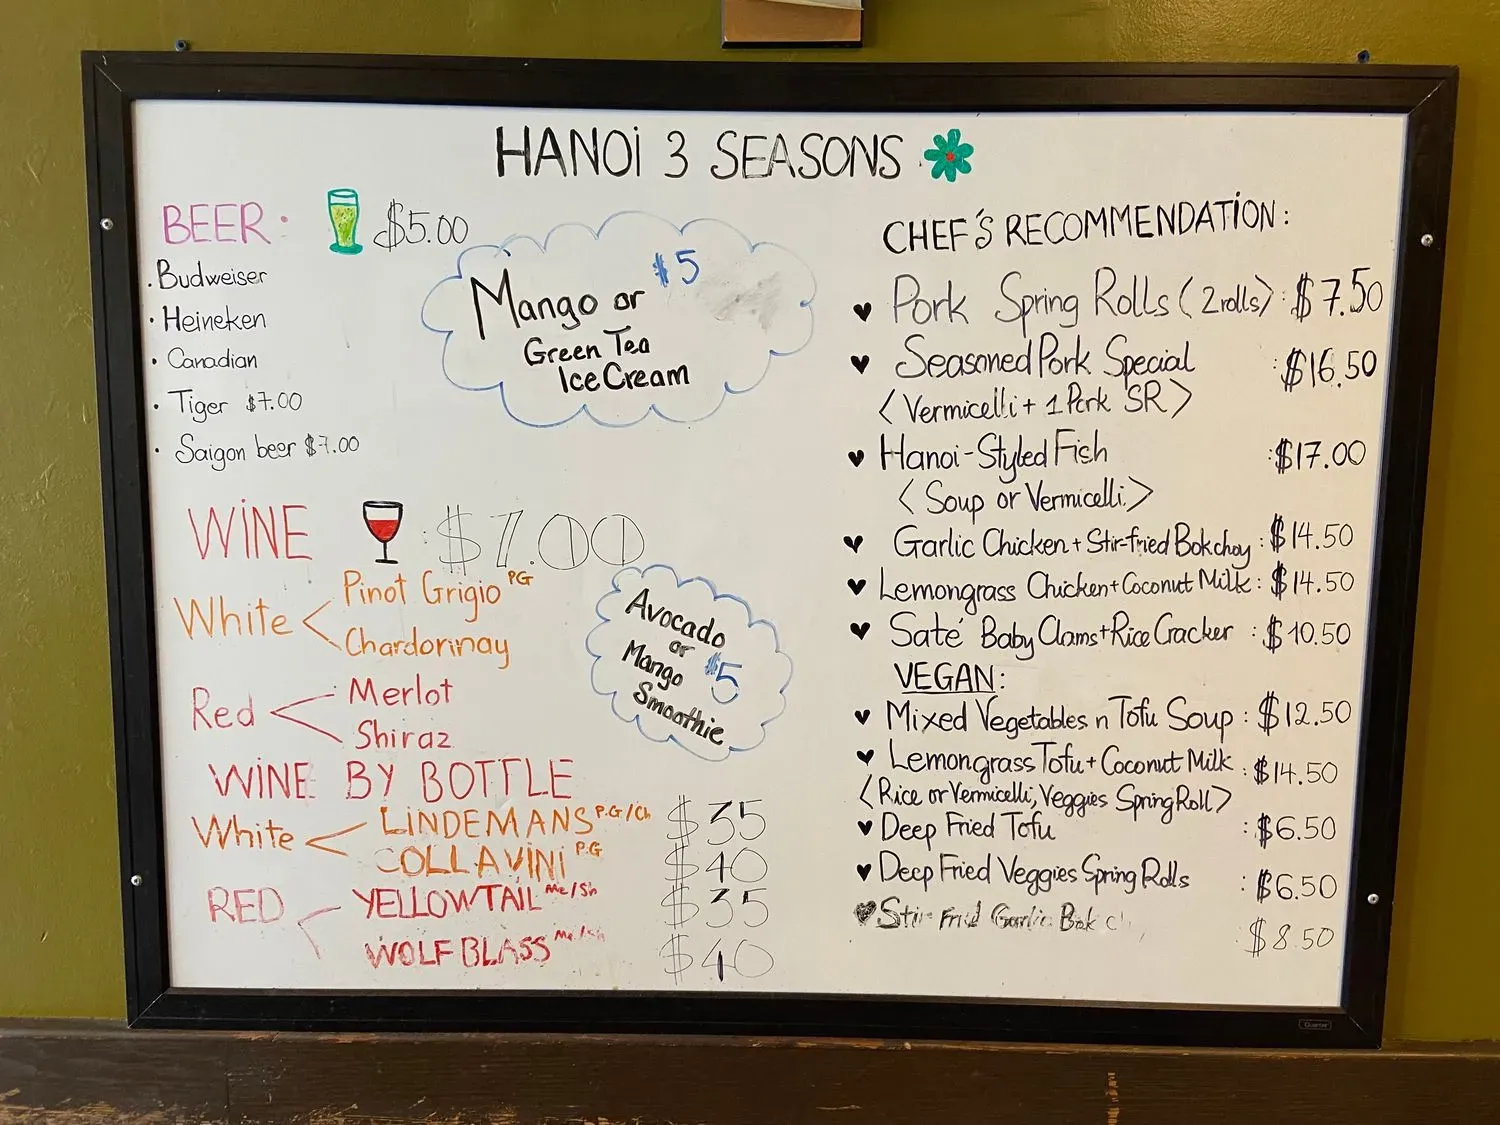 HANOi 3 SEASONS
BEER: $5.00
• Budweiser
• Heineken
• Canadian
• Tiger $7.00
• Saigon beer $7.00
Mango or $5
Green Tea
Ice Cream
WiNE : $7.00
White < Pinot Grigio PG
Chardorinay
Red < Merlot
Shiraz
Avocado
or
Mango $5
Smoothie
WiNE BY BOTTLE
White < LiNDEMANS P.G/Ch $35
COLLAViNi P.G $40
RED < YELLOWTAIL Me/Sh $35
WOLF BLASS Me/Sh $40
CHEF'S RECOMMENDATiON:
♥ Pork Spring Rolls (2 rolls): $7.50
♥ Seasoned Pork Special : $16.50
<Vermicelli + 1 Pork SR>
♥ Hanoi-Styled Fish : $17.00
<Soup or Vermicelli>
♥ Garlic Chicken + Stir-fried Bokchoy : $14.50
♥ Lemongrass Chicken + Coconut Milk : $14.50
♥ Saté Baby Clams + Rice Cracker : $10.50
VEGAN:
♥ Mixed Vegetables n Tofu Soup : $12.50
♥ Lemongrass Tofu + Coconut Milk : $14.50
<Rice or Vermicelli, Veggies Spring Roll>
♥ Deep Fried Tofu : $6.50
♥ Deep Fried Veggies Spring Rolls : $6.50
♥ Stir Fried Garlic Bok $8.50
Quartet